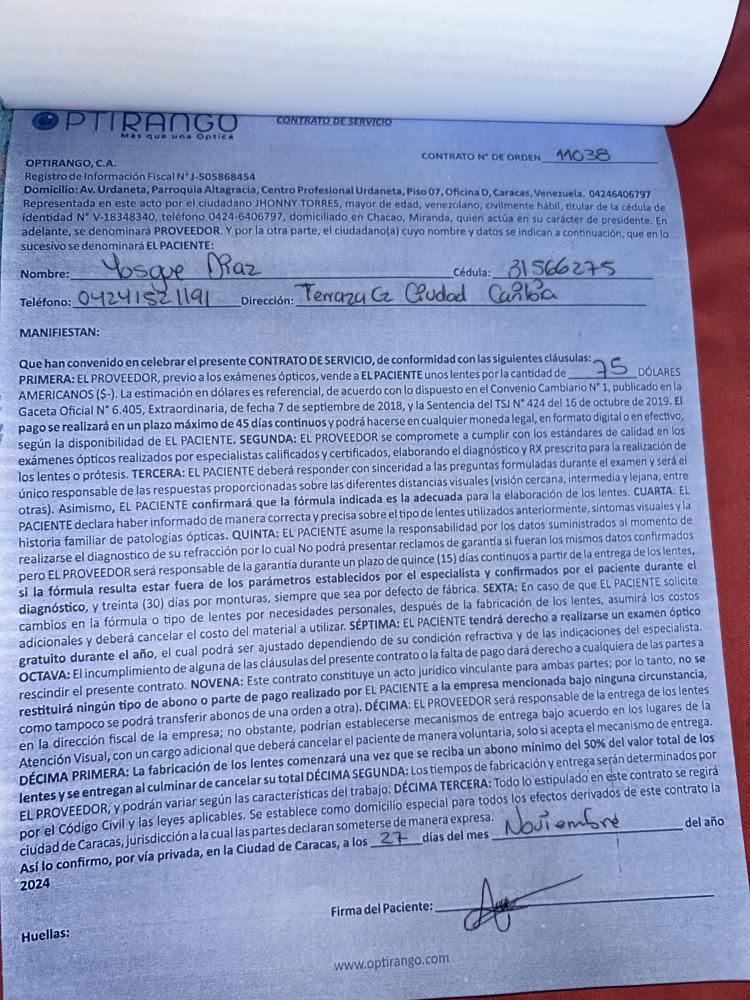 OPTIRANGO
Más que una Óptica
CONTRATO DE SERVICIO
CONTRATO N° DE ORDEN 11038
OPTIRANGO, C.A.
Registro de Información Fiscal N° J-505868454
Domicilio: Av. Urdaneta, Parroquia Altagracia, Centro Profesional Urdaneta, Piso 07, Oficina D, Caracas, Venezuela. 04246406797
Representada en este acto por el ciudadano JHONNY TORRES, mayor de edad, venezolano, civilmente hábil, titular de la cédula de
identidad N° V-18348340, teléfono 0424-6406797, domiciliado en Chacao, Miranda, quien actúa en su carácter de presidente. En
adelante, se denominará PROVEEDOR. Y por la otra parte, el ciudadano(a) cuyo nombre y datos se indican a continuación, que en lo
sucesivo se denominará EL PACIENTE:
Nombre: Yosgue Diaz Cédula: 31566275
Teléfono: 04241521191 Dirección: Terraza C2 Ciudad Caribia
MANIFIESTAN:
Que han convenido en celebrar el presente CONTRATO DE SERVICIO, de conformidad con las siguientes cláusulas:
PRIMERA: EL PROVEEDOR, previo a los exámenes ópticos, vende a EL PACIENTE unos lentes por la cantidad de 75 DÓLARES
AMERICANOS ($-). La estimación en dólares es referencial, de acuerdo con lo dispuesto en el Convenio Cambiario N° 1, publicado en la
Gaceta Oficial N° 6.405, Extraordinaria, de fecha 7 de septiembre de 2018, y la Sentencia del TSJ N° 424 del 16 de octubre de 2019. El
pago se realizará en un plazo máximo de 45 días continuos y podrá hacerse en cualquier moneda legal, en formato digital o en efectivo,
según la disponibilidad de EL PACIENTE. SEGUNDA: EL PROVEEDOR se compromete a cumplir con los estándares de calidad en los
exámenes ópticos realizados por especialistas calificados y certificados, elaborando el diagnóstico y RX prescrito para la realización de
los lentes o prótesis. TERCERA: EL PACIENTE deberá responder con sinceridad a las preguntas formuladas durante el examen y será el
único responsable de las respuestas proporcionadas sobre las diferentes distancias visuales (visión cercana, intermedia y lejana, entre
otras). Asimismo, EL PACIENTE confirmará que la fórmula indicada es la adecuada para la elaboración de los lentes. CUARTA: EL
PACIENTE declara haber informado de manera correcta y precisa sobre el tipo de lentes utilizados anteriormente, síntomas visuales y la
historia familiar de patologías ópticas. QUINTA: EL PACIENTE asume la responsabilidad por los datos suministrados al momento de
realizarse el diagnostico de su refracción por lo cual No podrá presentar reclamos de garantía si fueran los mismos datos confirmados
pero EL PROVEEDOR será responsable de la garantía durante un plazo de quince (15) días continuos a partir de la entrega de los lentes,
si la fórmula resulta estar fuera de los parámetros establecidos por el especialista y confirmados por el paciente durante el
diagnóstico, y treinta (30) días por monturas, siempre que sea por defecto de fábrica. SEXTA: En caso de que EL PACIENTE solicite
cambios en la fórmula o tipo de lentes por necesidades personales, después de la fabricación de los lentes, asumirá los costos
adicionales y deberá cancelar el costo del material a utilizar. SÉPTIMA: EL PACIENTE tendrá derecho a realizarse un examen óptico
gratuito durante el año, el cual podrá ser ajustado dependiendo de su condición refractiva y de las indicaciones del especialista.
OCTAVA: El incumplimiento de alguna de las cláusulas del presente contrato o la falta de pago dará derecho a cualquiera de las partes a
rescindir el presente contrato. NOVENA: Este contrato constituye un acto jurídico vinculante para ambas partes; por lo tanto, no se
restituirá ningún tipo de abono o parte de pago realizado por EL PACIENTE a la empresa mencionada bajo ninguna circunstancia,
como tampoco se podrá transferir abonos de una orden a otra). DÉCIMA: EL PROVEEDOR será responsable de la entrega de los lentes
en la dirección fiscal de la empresa; no obstante, podrían establecerse mecanismos de entrega bajo acuerdo en los lugares de la
Atención Visual, con un cargo adicional que deberá cancelar el paciente de manera voluntaria, solo si acepta el mecanismo de entrega.
DÉCIMA PRIMERA: La fabricación de los lentes comenzará una vez que se reciba un abono mínimo del 50% del valor total de los
lentes y se entregan al culminar de cancelar su total DÉCIMA SEGUNDA: Los tiempos de fabricación y entrega serán determinados por
EL PROVEEDOR, y podrán variar según las características del trabajo. DÉCIMA TERCERA: Todo lo estipulado en este contrato se regirá
por el Código Civil y las leyes aplicables. Se establece como domicilio especial para todos los efectos derivados de este contrato la
ciudad de Caracas, jurisdicción a la cual las partes declaran someterse de manera expresa.
Así lo confirmo, por vía privada, en la Ciudad de Caracas, a los 27 días del mes Noviembre del año
2024
Firma del Paciente:
Huellas:
www.optirango.com